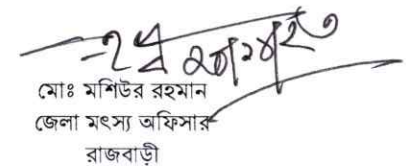 মোঃ মশিউর রহমান
জেলা মৎস্য অফিসার
রাজবাড়ী